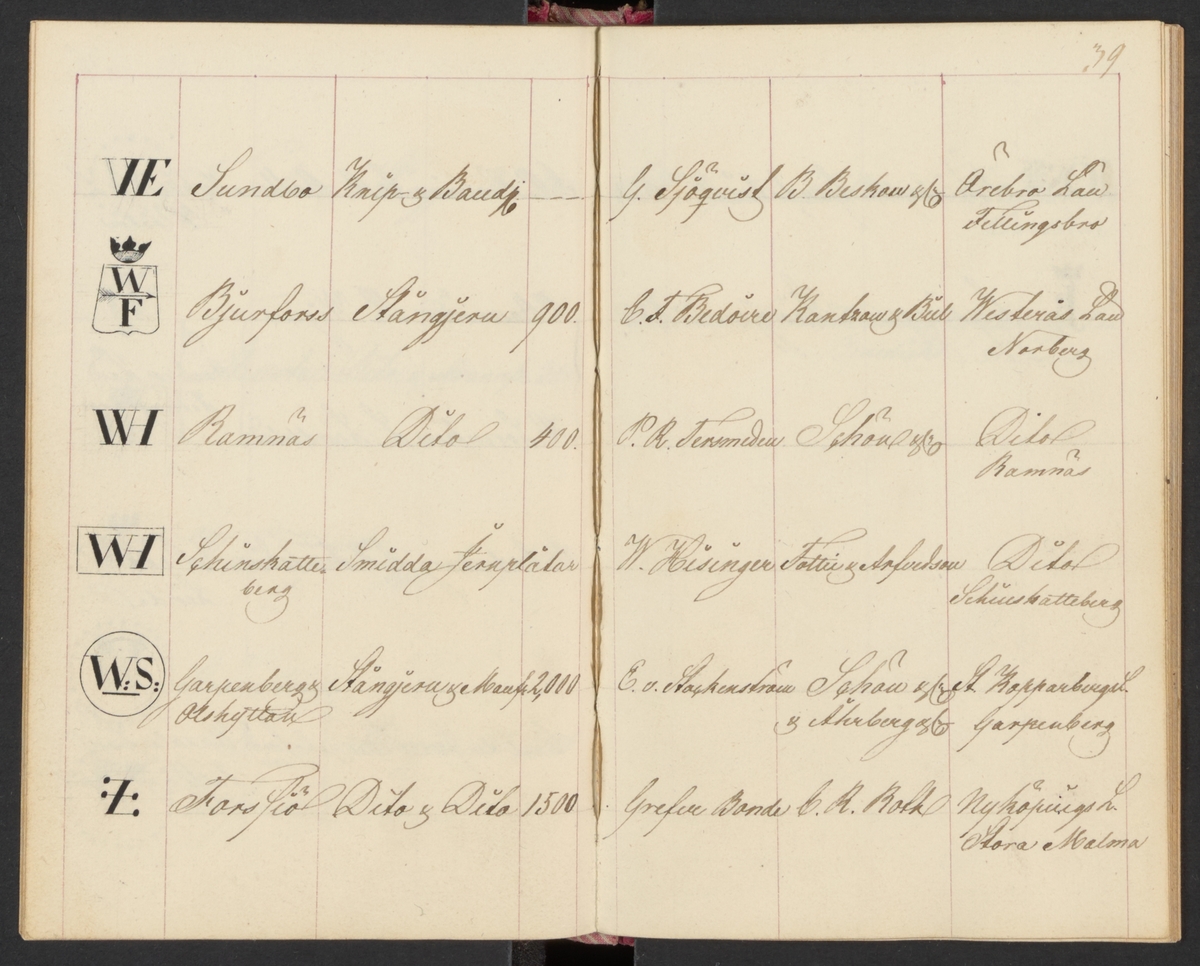 39
VE Sundbo Knip- & Bandj. --- G. Sjöqvist B. Beskow & C Örebro Län
Fellingsbro
W
F Bjurforss Stångjern 900. C. F. Bedoire Kantzow & Biel Westerås Län
Norberg
WH Ramnäs Dito 400. P. R. Tersmeden Schön & C Dito
Ramnäs
WH Schinskatte- Smidda Jernplåtar W. Hisinger Tottie & Arfvedson Dito
berg Schinskatteberg
W:S: Garpenberg & Stångjern & Manufr 2,000 E. v. Stockenström Schön & C St. Kopparbergs L.
Olshyttan & Åhrberg & C Garpenberg
:Z: Forssjö Dito & Dito 1500 Grefve Bonde C. R. Roth Nyköpings L.
Stora Malma